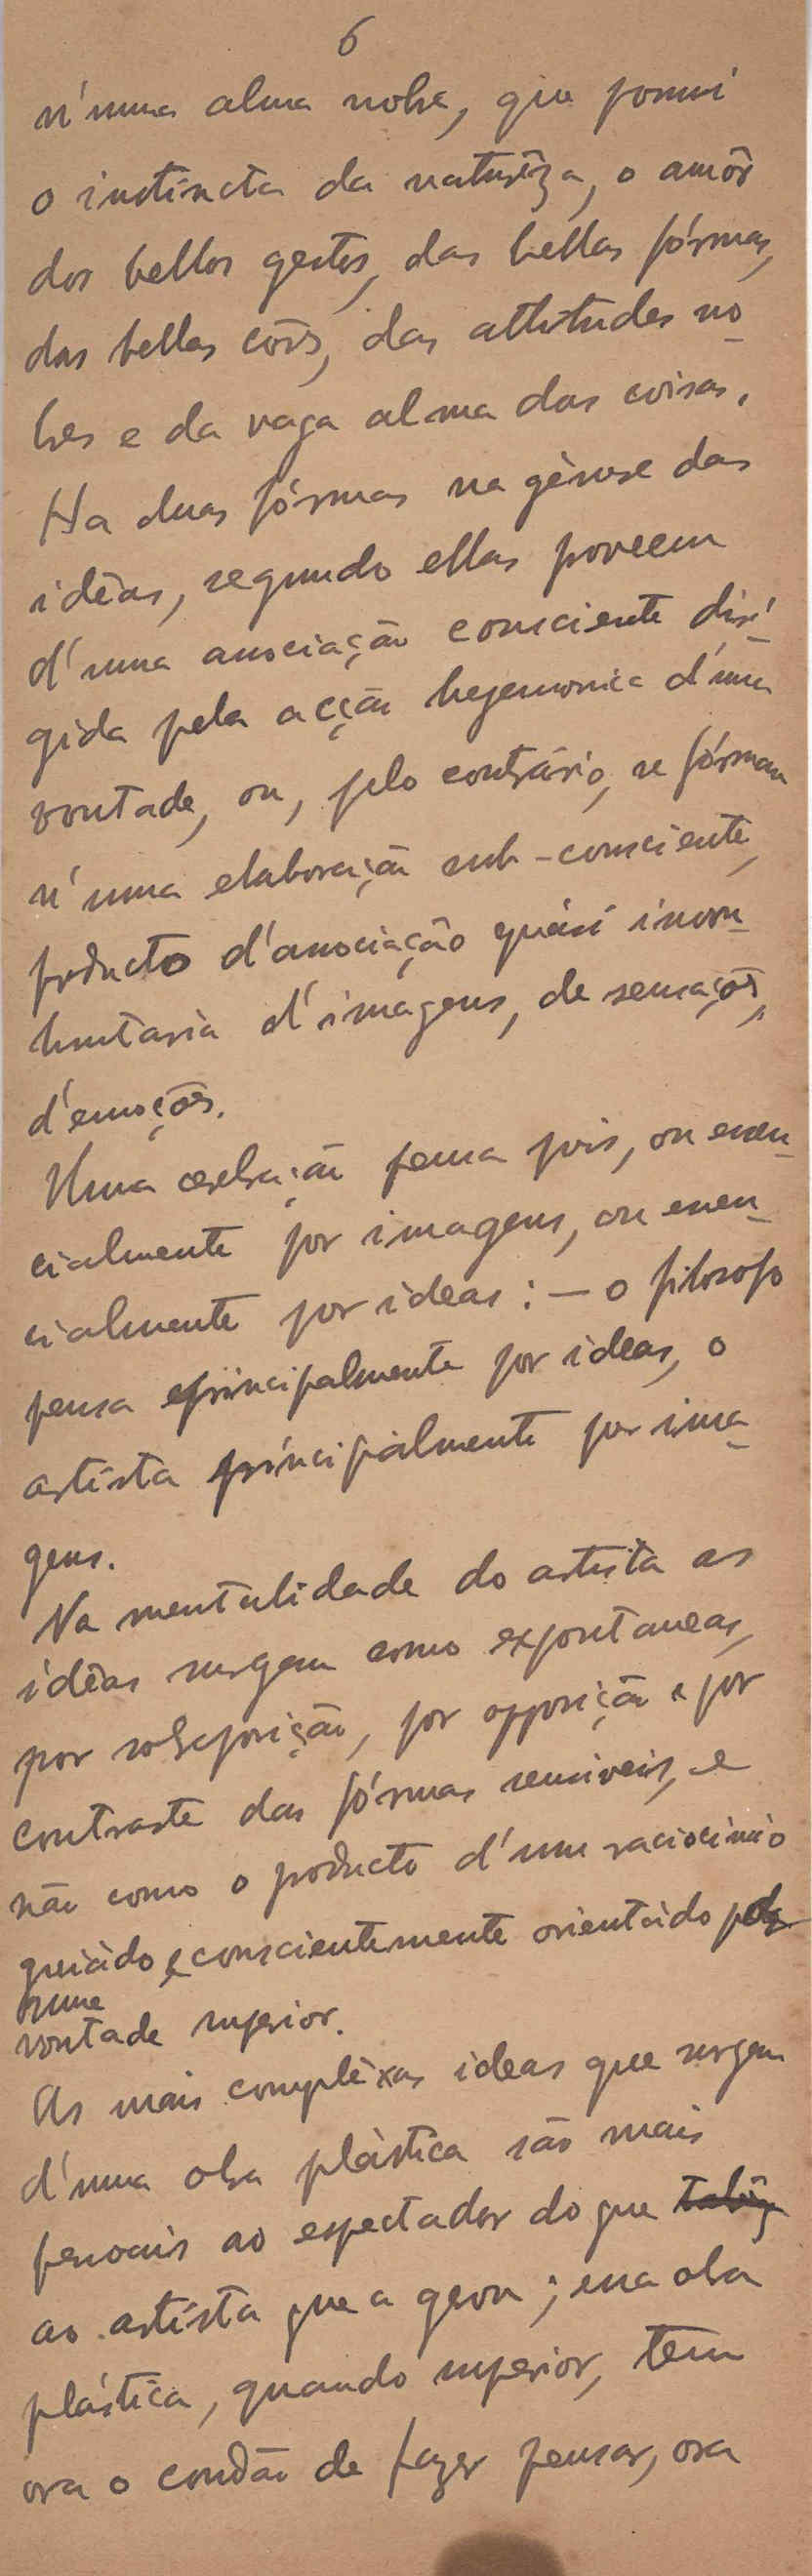 6
n'uma alma nobre, que possui
o instincto da naturêza, o amôr
dos bellos gestos, das bellas fórmas,
das bellas côrs, das attitudes no-
bres e da vaga alma das coisas.
Ha duas fórmas na gènese das
idêas, segundo ellas proveem
d'uma associação consciente diri-
gida pela acção hegemonica d'uma
vontade, ou, pelo contrário, se fórmam
n'uma elaboração sub-consciente,
producto d'associação quási invo-
luntaria d'imagens, de sensações,
d'emoções.
Uma cerebração pensa pois, ou essen-
cialmente por imagens, ou essen-
cialmente por ideas: — o filosofo
pensa principalmente por ideas, o
artista principalmente por ima-
gens.
Na mentalidade do artista as
idêas surgem como expontaneas,
por sobreposição, por opposição e por
contraste das fórmas sensiveis, e
não como o producto d'um raciocinio
guiado e conscientemente orientado
n'uma
vontade superior.
As mais complèxas ideas que surgem
d'uma obra plàstica são mais
pessoais ao espectador do que
ao artista que a gerou; essa obra
plástica, quando superior, tem
ora o condão de fazer pensar, ora